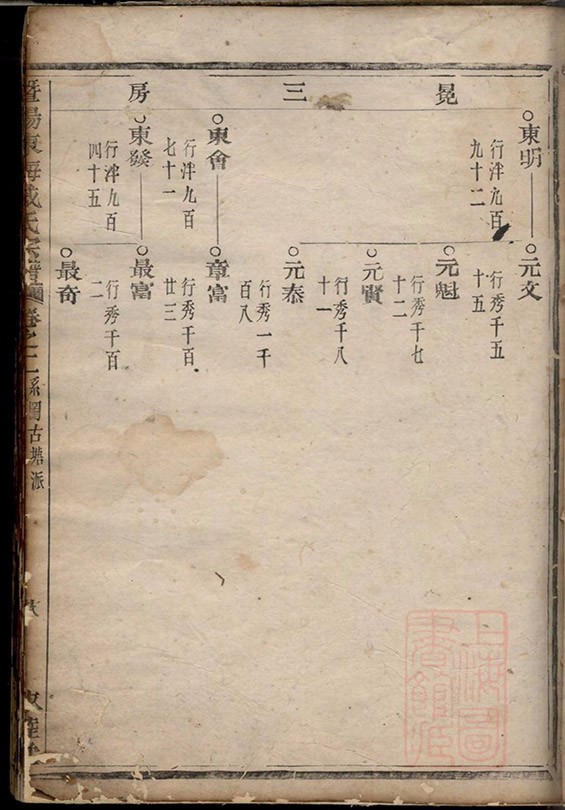 晃三房
東明
行泮九百
九十二
元文
行秀千五
十五
元魁
行秀千七
十二
元賢
行秀千八
十一
元泰
行秀一千
百八
東會
行泮九百
七十一
章富
行秀千百
廿三
東發
行泮九百
四十五
最富
行秀千百
二
最奇
暨陽東海戚氏宗譜 卷之二 系圖古塘派
上海圖
書館藏